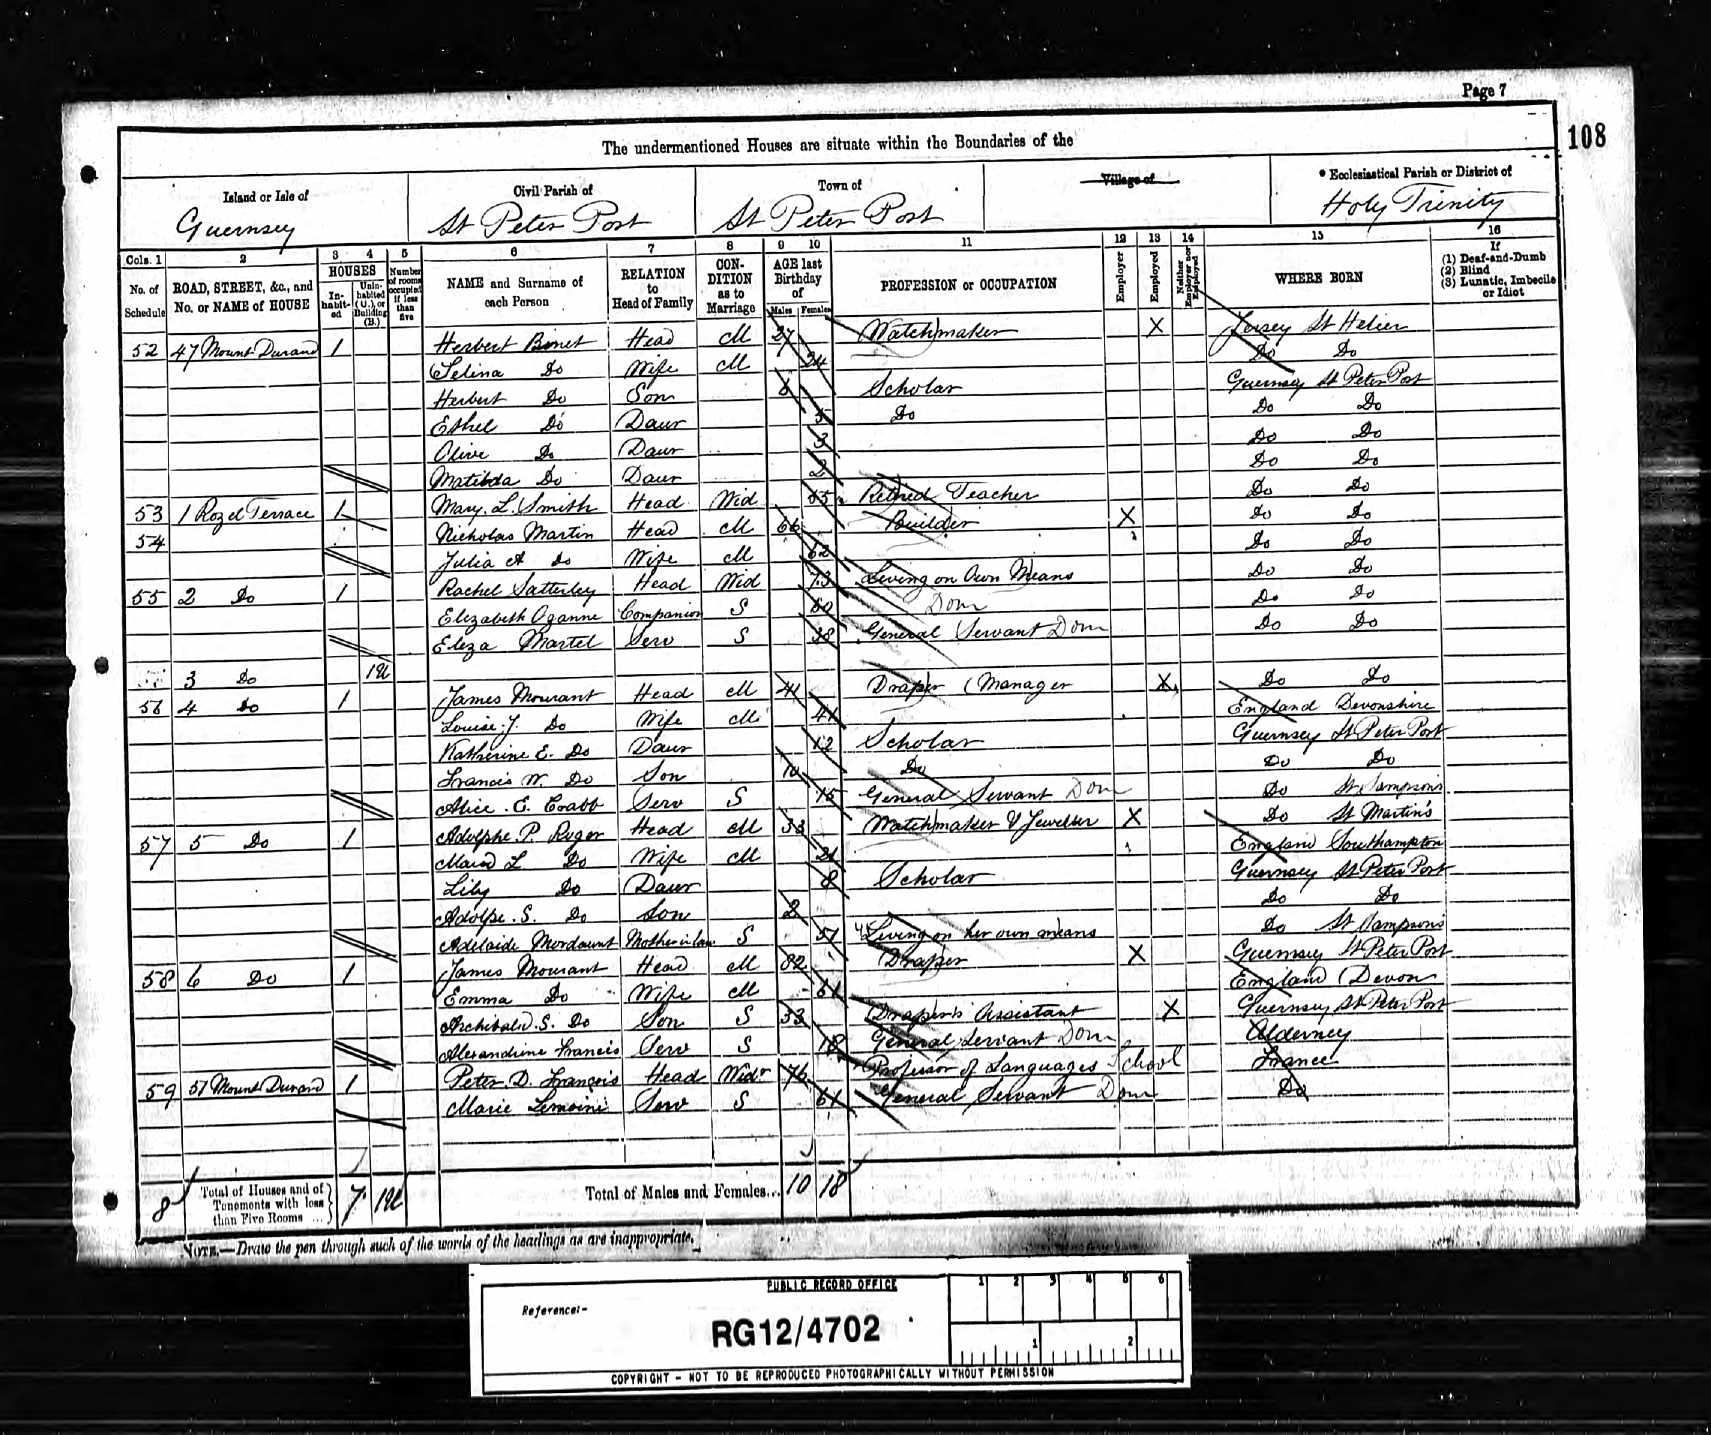 Page 7
108
The undermentioned Houses are situate within the Boundaries of the
Island or Isle of Guernsey
Civil Parish of St Peter Port
Town of St Peter Port
Village of
Ecclesiastical Parish or District of Holy Trinity
Cols. 1 2 3 4 5 6 7 8 9 10 11 12 13 14 15 16
No. of Schedule
ROAD, STREET, &c., and No. or NAME of HOUSE
HOUSES
In-habit-ed
Unin-habited (U.), or Building (B.)
Number of rooms occupied if less than five
NAME and Surname of each Person
RELATION to Head of Family
CON-DITION as to Marriage
AGE last Birthday of
Males Females
PROFESSION or OCCUPATION
Employer
Employed
Neither Employer nor Employed
WHERE BORN
If (1) Deaf-and-Dumb (2) Blind (3) Lunatic, Imbecile or Idiot
52 47 Mount Durand 1 Herbert Binet Head M 27 Watchmaker X Jersey St Helier
Selina Do Wife M 24 Do Do
Herbert Do Son 6 Scholar Guernsey St Peter Port
Ethel Do Daur 5 Do Do Do
Olive Do Daur 3 Do Do
Matilda Do Daur 2 Do Do
53 1 Rozel Terrace 1 Mary. L. Smith Head Wid Retired Teacher Do Do
54 Nicholas Martin Head M 66 Builder X Do Do
Julia A Do Wife M 52 Do Do
55 2 Do 1 Rachel Satterley Head Wid 73 Living on Own Means Do Do
Elizabeth Ozanne Companion S 60 Dom Do Do
Eliza Martel Serv S General Servant Dom Do Do
3 Do 1U
56 4 Do 1 James Mourant Head M 41 Draper (Manager X Do Do
Louise. J. Do Wife M 41 England Devonshire
Katherine E. Do Daur 12 Scholar Guernsey St Peter Port
Francis W. Do Son 10 Do Do Do
Alice. E. Crabb Serv S 15 General Servant Dom Do St Sampson's
57 5 Do 1 Adolphe. P. Roger Head M 33 Watchmaker & Jeweller X Do St Martin's
Maud L Do Wife M England Southampton
Lily Do Daur 8 Scholar Guernsey St Peter Port
Adolpe. S. Do Son 2 Do Do
Adelaide Mordaunt Mother in law S 57 Living on her own means Do St Sampson's
58 6 Do 1 James Mourant Head M 82 Draper X Guernsey St Peter Port
Emma Do Wife M 61 England (Devon
Archibald. S. Do Son S 33 Draper's Assistant X Guernsey St Peter Port
Alexandrine Francis Serv S 18 General Servant Dom Alderney
59 57 Mount Durand 1 Peter. D. François Head Widr 76 Professor of Languages School France
Marie Lemoine Serv S 61 General Servant Dom Do
8 Total of Houses and of Tenements with less than Five Rooms ... 7 1U Total of Males and Females... 10 18
NOTE.—Draw the pen through such of the words of the headings as are inappropriate.
PUBLIC RECORD OFFICE
1 2 3 4 5 6
Reference:-
RG12/4702
1 2
COPYRIGHT - NOT TO BE REPRODUCED PHOTOGRAPHICALLY WITHOUT PERMISSION